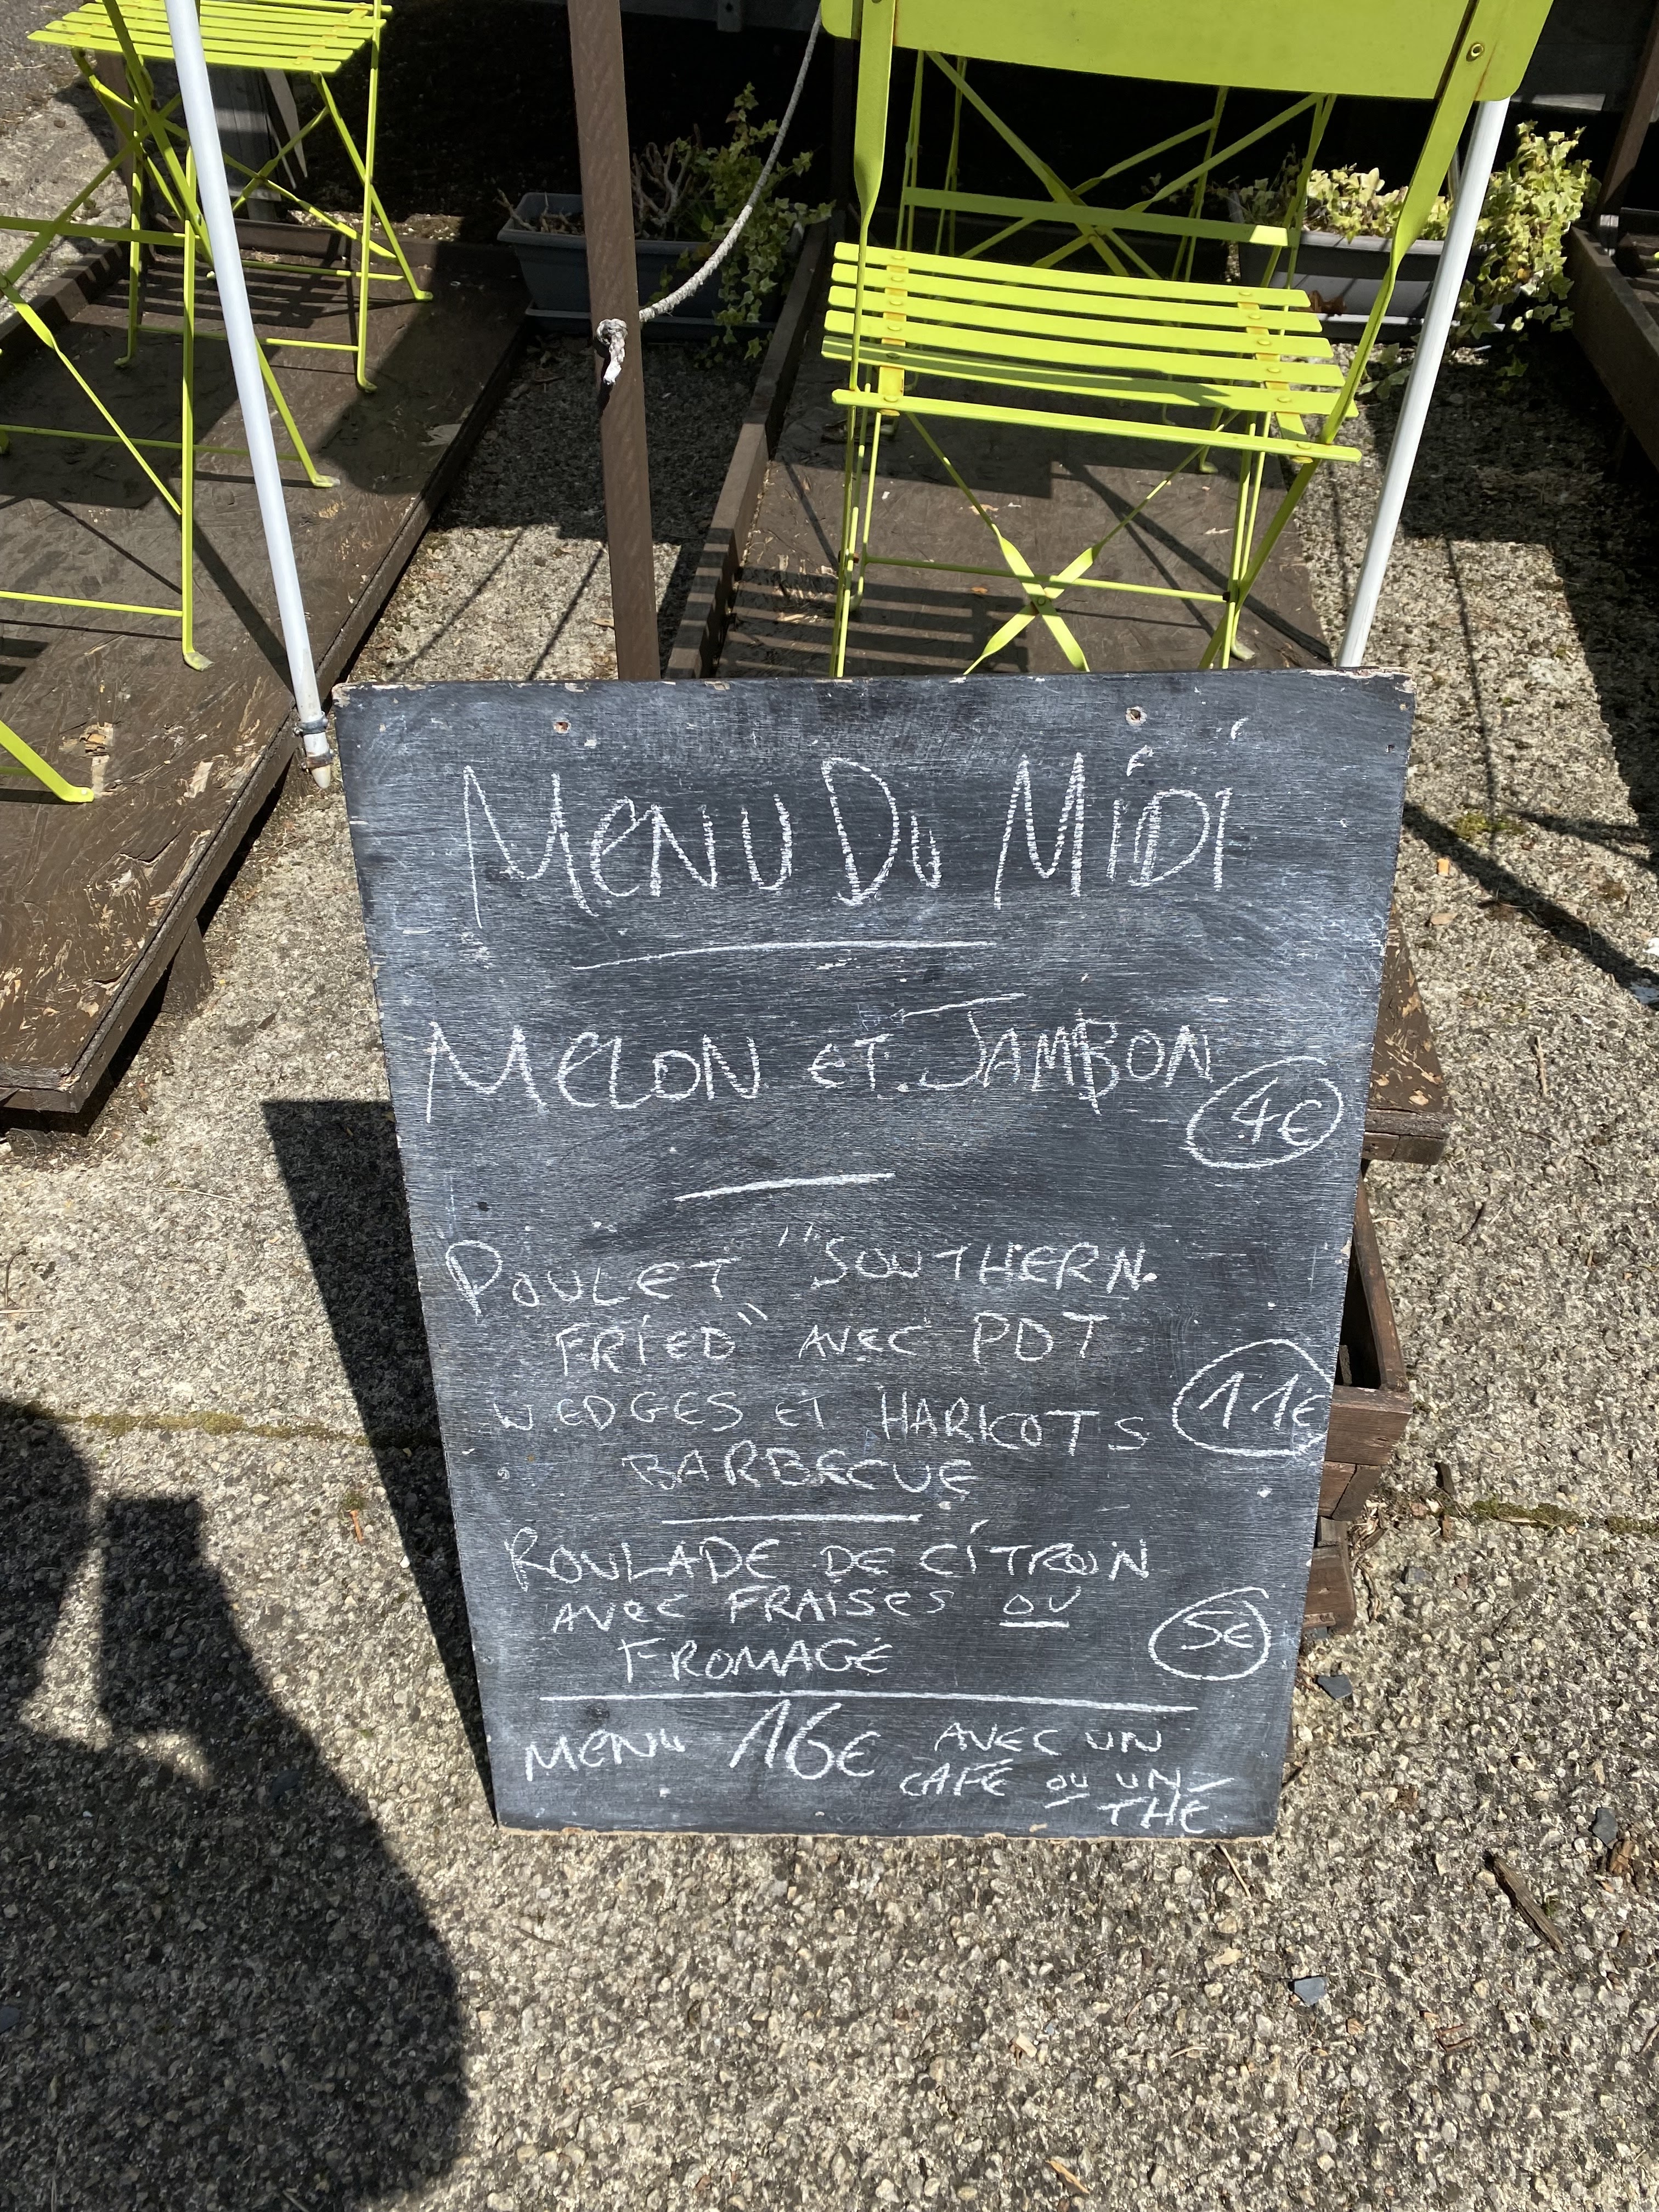 MENU DU MIDI
MELON ET JAMBON
4€
POULET "SOUTHERN
FRIED" AVEC PDT
WEDGES ET HARICOTS
11€
BARBECUE
ROULADE DE CITRON
AVEC FRAISES OU
5€
FROMAGE
MENU 16€ AVEC UN
CAFÉ OU UN
THÉ